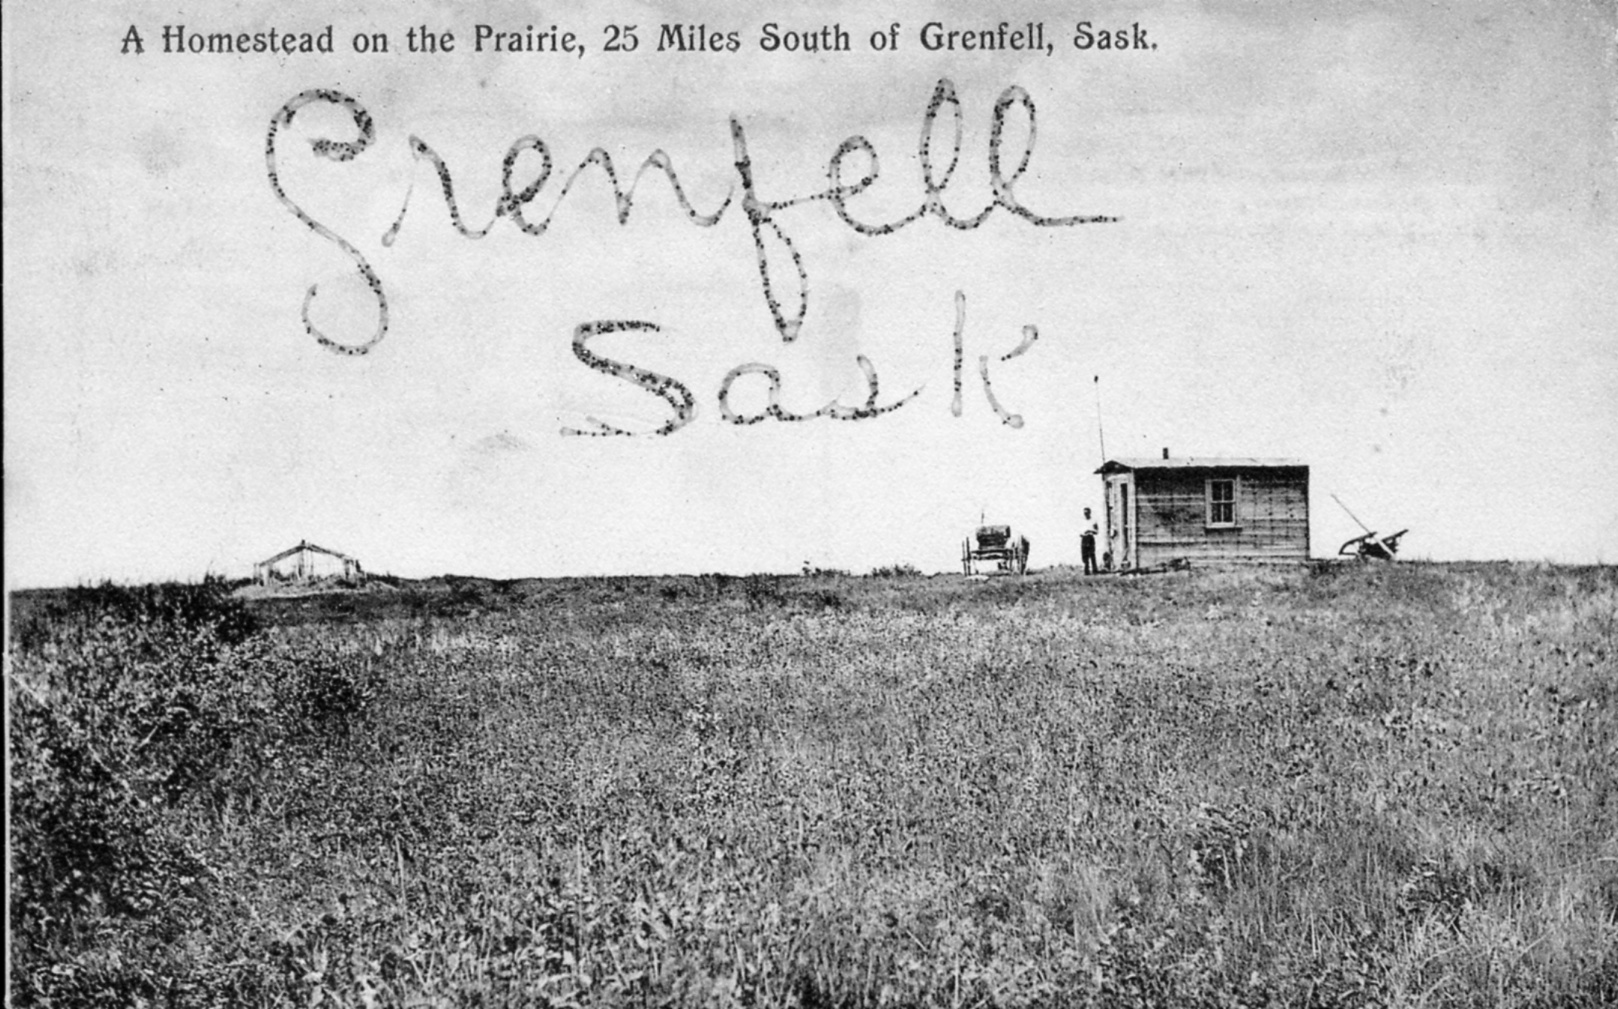 A Homestead on the Prairie, 25 Miles South of Grenfell, Sask.
Grenfell
Sask